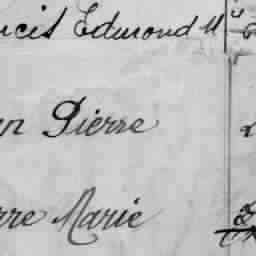 ncis Edmond M
en Pierre
rre Marie